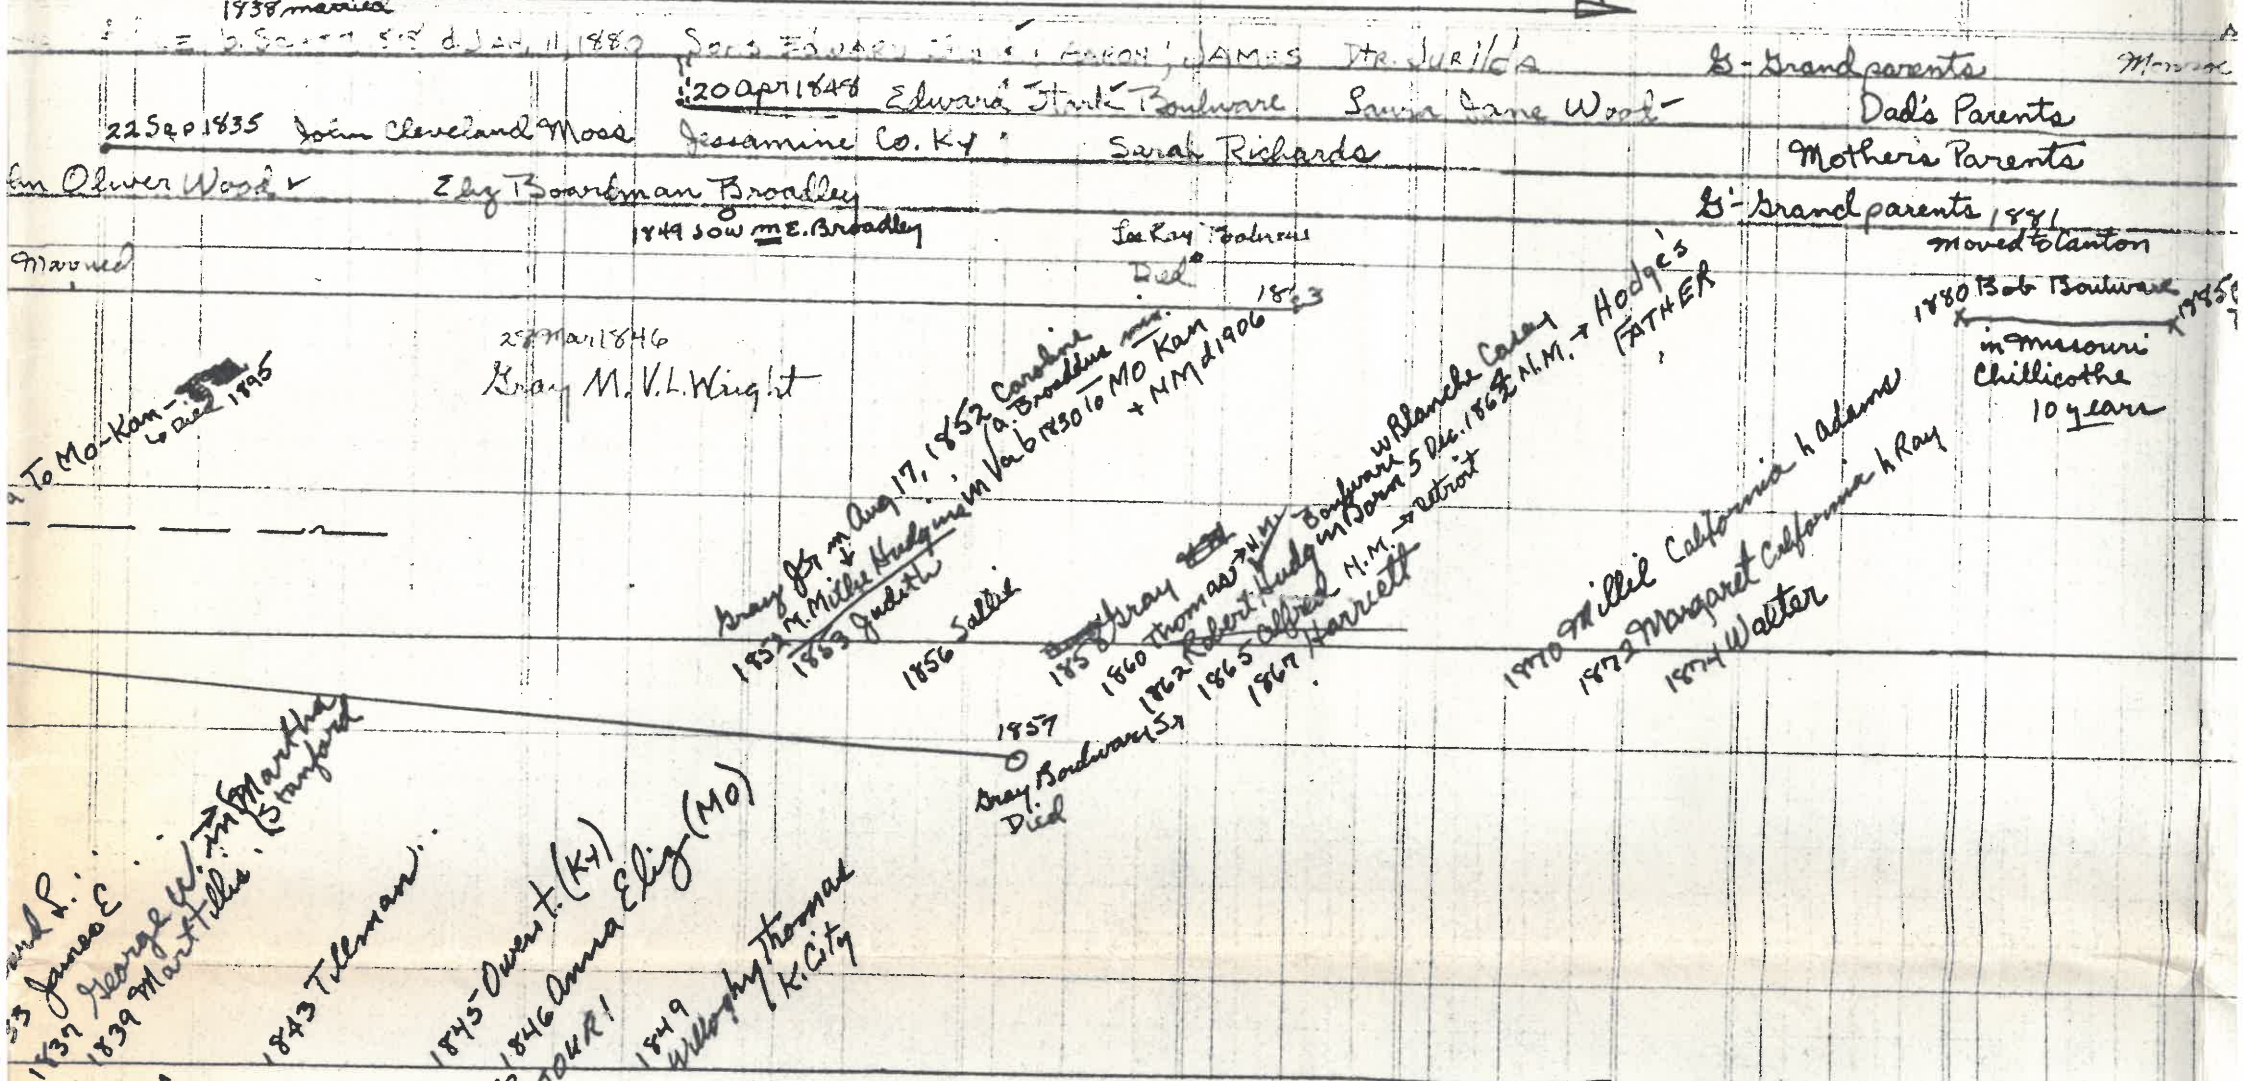 1838 married
d. Jan. 11, 1880 Sons Edward AARON; JAMES DTR. JURILDA
G-Grandparents
20 Apr 1848 Edward Stark Boulware Laura Jane Wood
Dad's Parents
22 Sep 1835 John Cleveland Moss Jessamine Co. Ky Sarah Richards
Mother's Parents
Oliver Wood Eliz Boardman Broadley
G-Grandparents
1849 JOW m E. Broadley
1881
moved to Canton
Married
Died
1880 Bob Boulware 1885
in Missouri
Chillicothe
10 years
28 Mar 1846
Gray M.V.L. Wright
To Mo-Kan-
Died 1895
Gray Jr m Aug 17, 1852 Caroline
(a. Broaddus
1852 M. Millie Hudgins in Va b 1830 to MO Kan
+ NM d 1906
1853 Judith
1856 Sallie
1858 Gray
1860 Thomas → N.M.
1862 Robert Hudgin Born 5 Dec. 1862 N.M. → Hodge's
FATHER
Boulware w Blanche Casey
1865 Alfred N.M. → Detroit
1867 Harriett
1870 Millie California h Adams
1872 Margaret California h Ray
1874 Walter
1857
Gray Boulware Sr
Died
James E
1837 George W. → m (Martha
(Stanford
1839 Mart Tillis
1843 Tillman
1845 Owen T. (Ky)
1846 Anna Eliz (MO)
1849
Willoghby Thomas
K. City